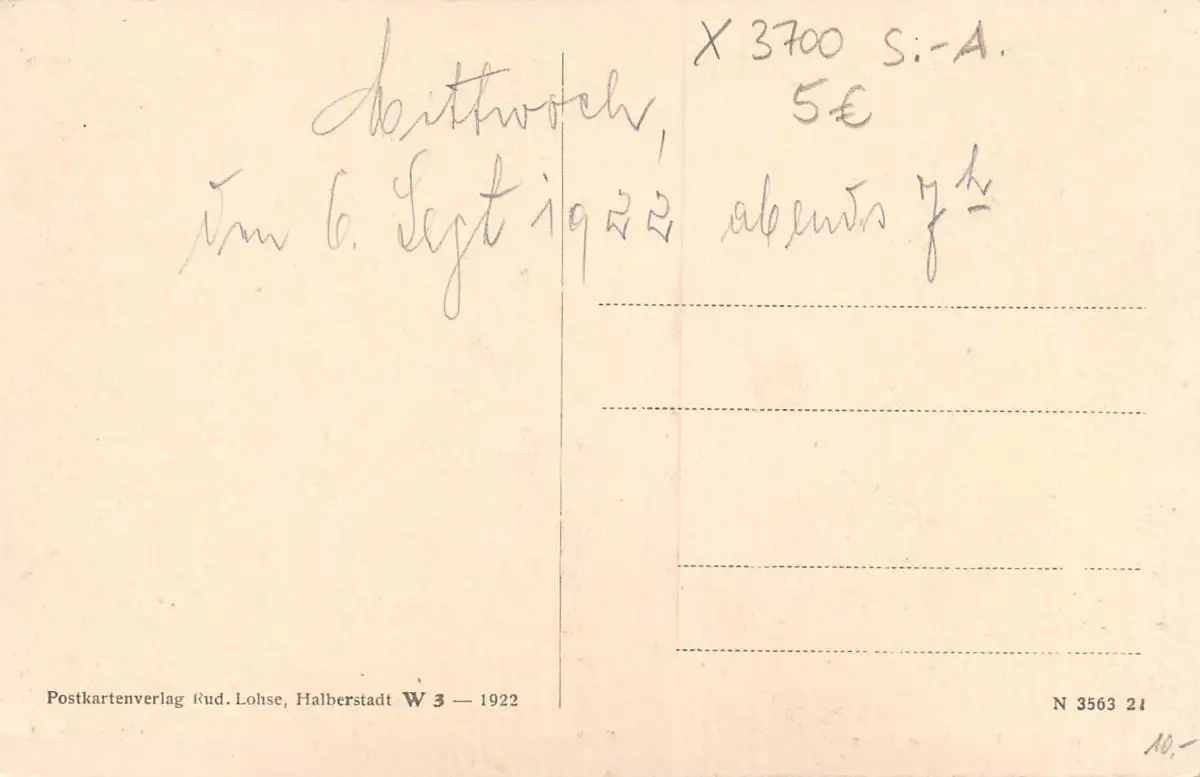 X 3700 S.-A.
5€
Mittwoch,
den 6. Sept 1922 abends 7h
Postkartenverlag Rud. Lohse, Halberstadt W 3 — 1922
N 3563 21
10,-